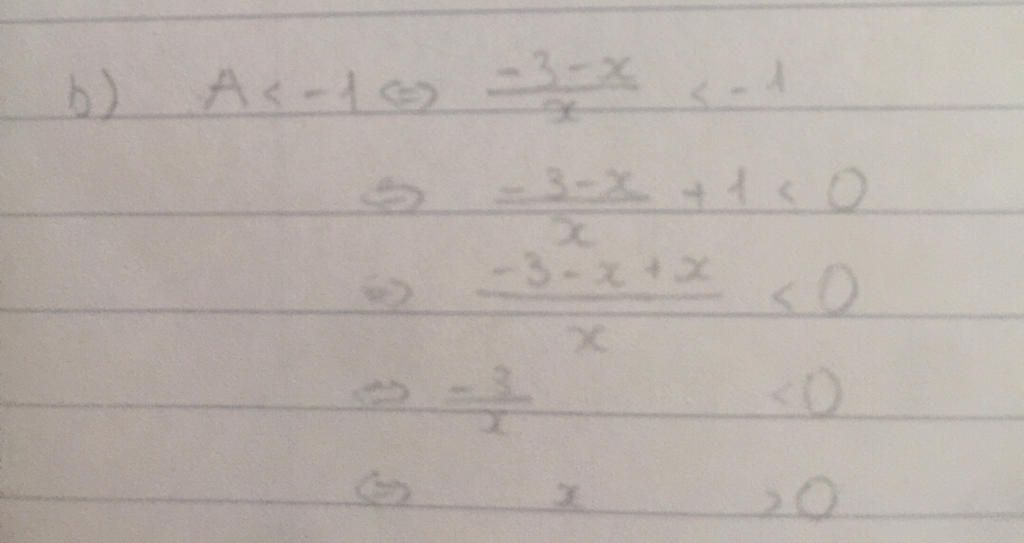 b) A < -1 ⇔ \frac{-3-x}{x} < -1
⇔ \frac{-3-x}{x} + 1 < 0
⇔ \frac{-3-x+x}{x} < 0
⇔ \frac{-3}{x} < 0
⇔ x > 0